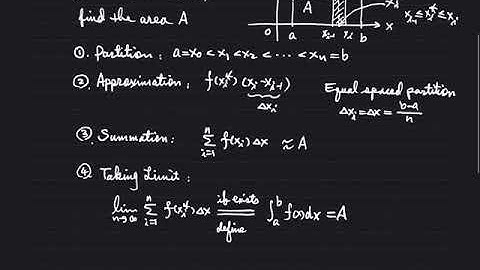 find the area A
A
0 a x_{i-1} x_i b
x_i^*
x_{i-1} ≤ x_i^* ≤ x_i
①. Partition: a=x_0 < x_1 < x_2 < ⋯ < x_n = b
②. Approximation: f(x_i^*) (x_i - x_{i-1})
Δx_i
Equal spaced partition
Δx_i = Δx = \frac{b-a}{n}
③. Summation: \sum_{i=1}^{n} f(x_i) Δx ≈ A
④. Taking Limit:
\lim_{n→∞} \sum_{i=1}^{n} f(x_i^*) Δx \underset{define}{\overset{if exists}{=}} \int_a^b f(x)dx = A